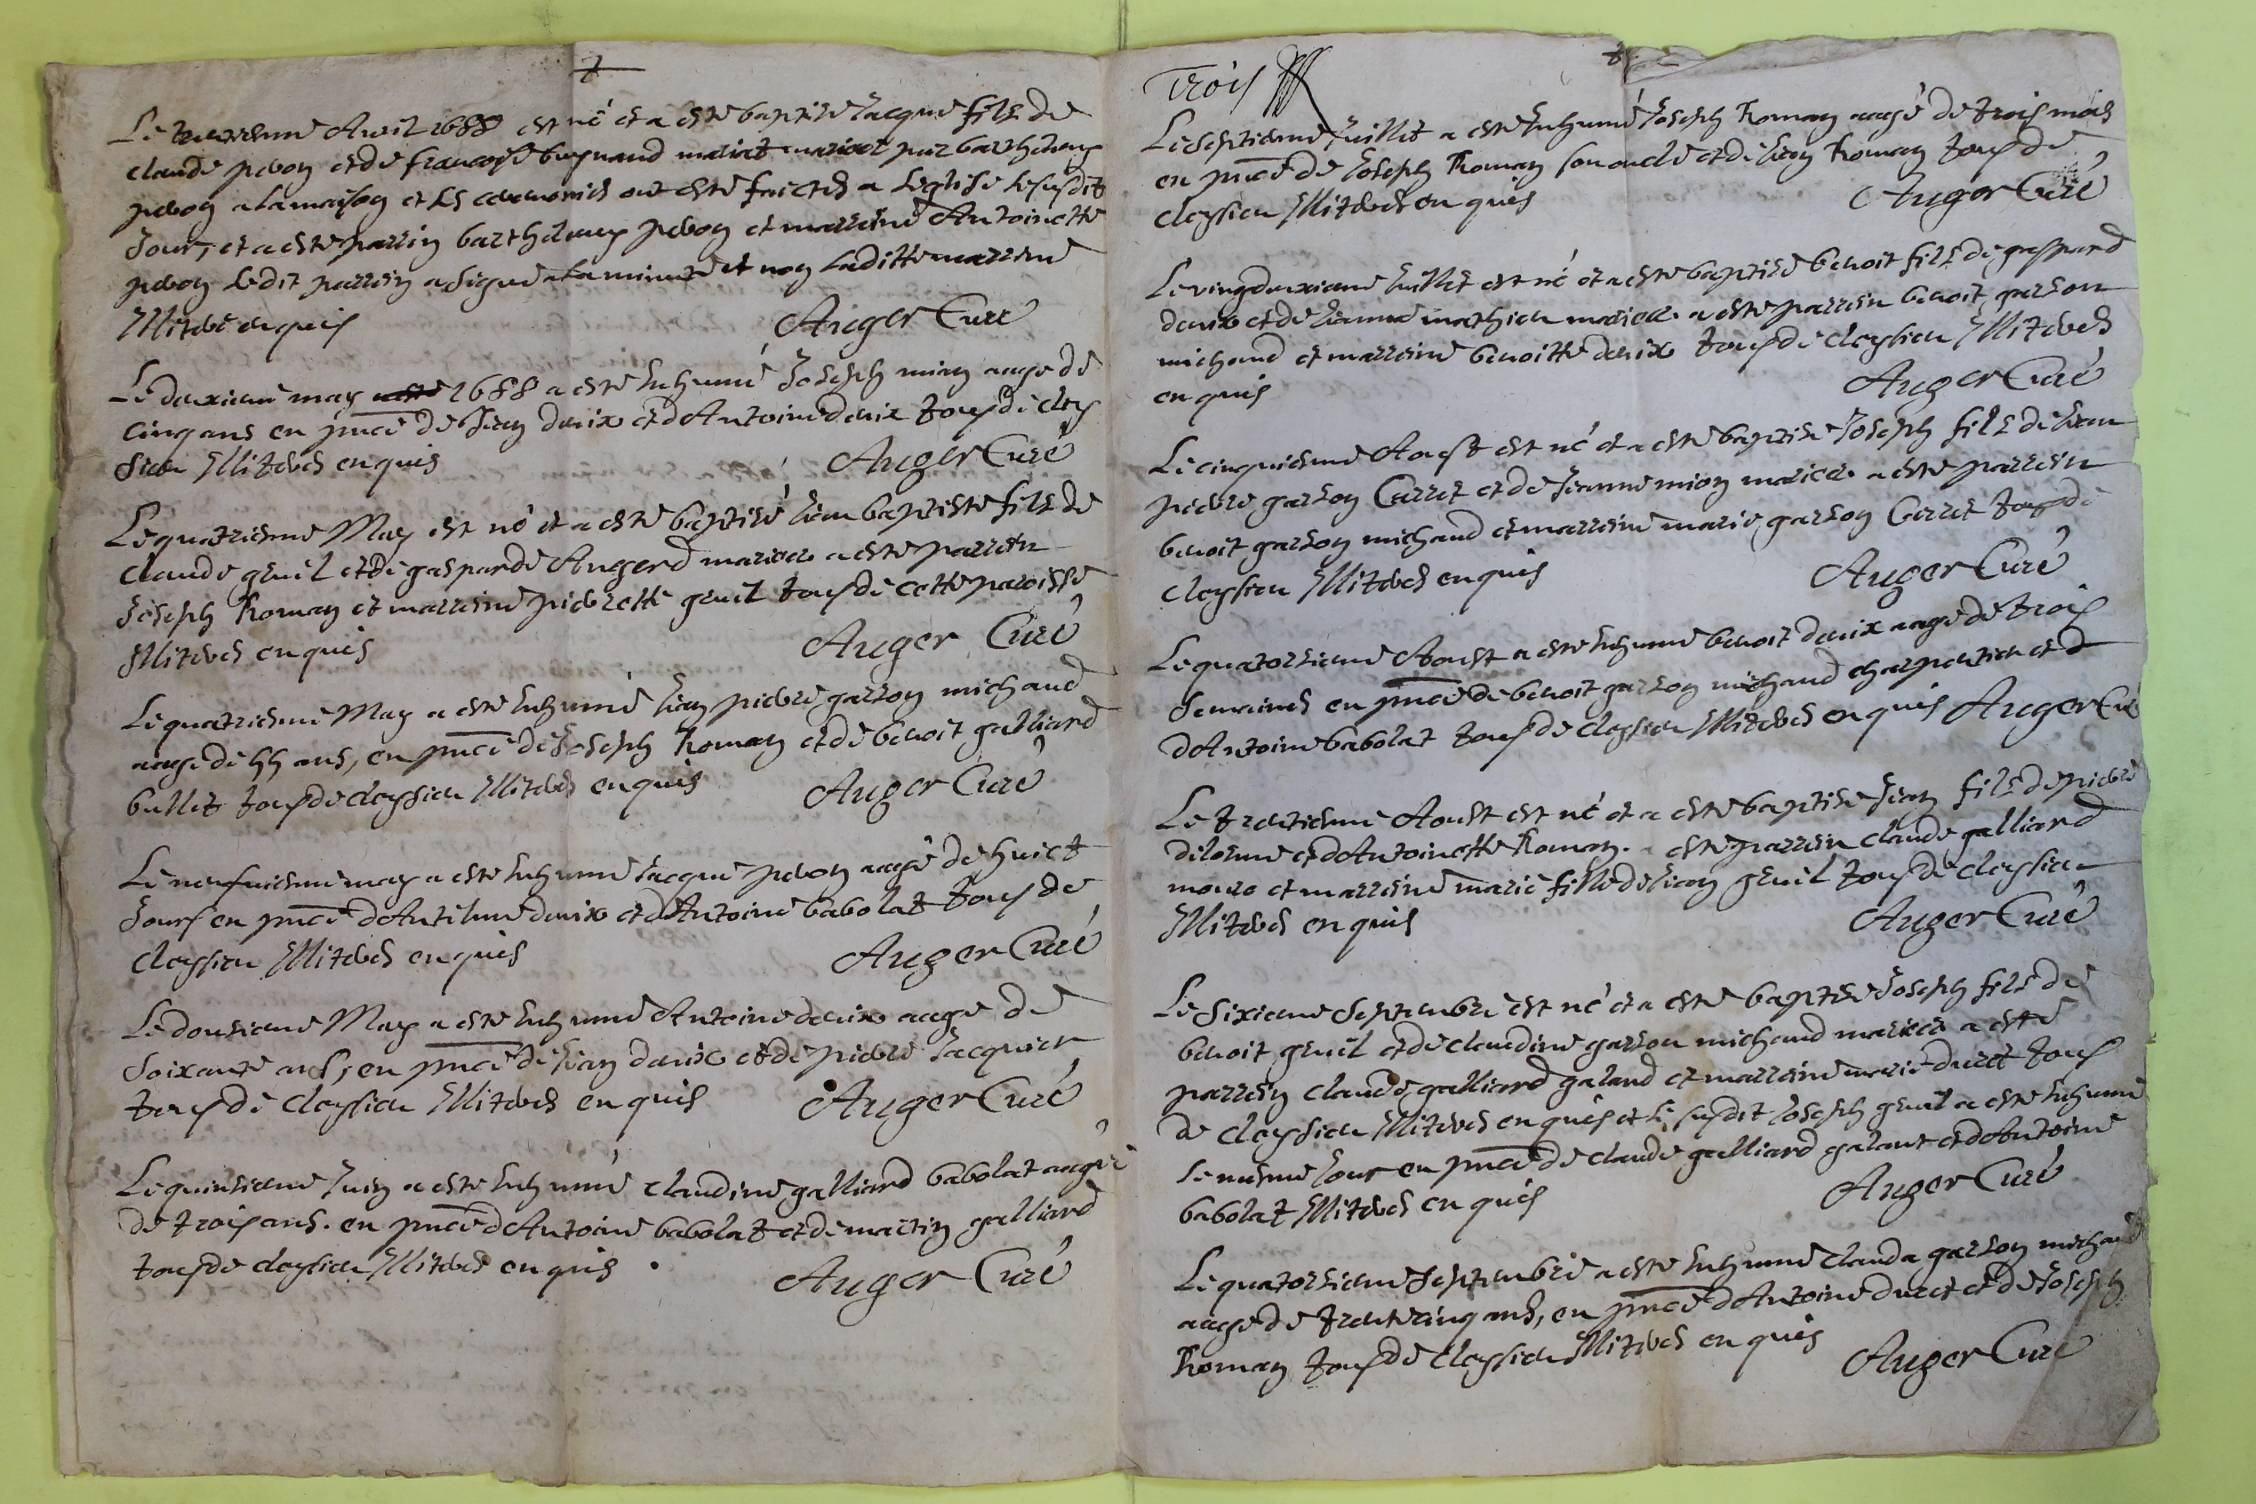 Le Avril 1688 est né et a esté baptisé Jacque fils de
Claude pevon et de françoise mariez par barthelemy
pevon a la maison et les ceremonies ont esté faictes a leglise le susdit
Jour, et a esté parrin barthelemy pevon et marreine Antoinette
pevon ledit parrein a signé a la minute et non laditte marreine
Illiteré enquis Auger Curé
Le deuxieme may 1688 a esté Inhumé Joseph mion aagé de
cinq ans en pnce de Jean deuix et dAntoine deuix tous de cley
sieu Illiterés enquis Auger Curé
Le quatrieme May est né et a esté baptisé Jean baptiste fils de
Claude genil et de gasparde Angerd mariez a esté parrein
Joseph Roman et marreine pierrette genil tous de cette paroisse
Illiterés enquis Auger Curé
Le quatrieme May a esté Inhumé Jean pierre garson michaud
aagé de 55 ans, en pnce de Joseph Roman et de benoit galliard
bullet tous de cleysieu Illiterés enquis Auger Curé
Le neufvieme may a esté Inhumé Jacque pevon aagé de huict
Jours en pnce dAntelme deuix et dAntoine babolat tous de
cleysieu Illiterés enquis Auger Curé
Le dousieme May a esté Inhumé Antoine deuix aagé de
Soixante ans, en pnce de Jean deuix et de pierre Jacquier
tous de cleysieu Illiterés enquis Auger Curé
Le quinsieme Juin a esté Inhumé claudine galliard babolat aagée
de trois ans. en pnce dAntoine babolat et de martin galliard
tous de cleysieu Illiterés enquis Auger Curé
Trois
Le septieme Juillet a esté Inhumé Joseph Roman aagé de trois mois
en pnce de Joseph Roman son oncle et de Jean Roman tous de
cleysieu Illiterés enquis Auger Curé
Le vingdeuxieme Juillet est né et a esté baptisé benoit fils de gaspard
deuix et de Jeanne mathieu mariez a esté parrein benoit garson
michaud et marreine benoitte deuix tous de cleysieu Illiterés
enquis Auger Curé
Le cinquieme Aoust est né et a esté baptisé Joseph fils de Jean
pierre garson Carret et de Jeanne mion mariez. a esté parrein
benoit garson michaud et marreine marie garson Carret tous de
cleysieu Illiterés enquis Auger Curé
Le quatorsieme Aoust a esté Inhumé benoit deuix aagé de trois
semaines en pnce de benoit garson michaud charpentier et d
dAntoine babolat tous de cleysieu Illiterés enquis Auger Curé
Le trentieme Aoust est né et a esté baptisé Jean fils de pierre
delorme et dAntoinette Roman. a esté parrein claude galliard
moiro et marreine marie fille de Jean genil tous de cleysieu
Illiterés enquis Auger Curé
Le sixieme septembre est né et a esté baptisé Joseph fils de
benoit genil et de claudine garson michaud mariez a esté
parrein claude galliard galand et marreine marie duret tous
de cleysieu Illiterés enquis et le susdit Joseph genil a esté Inhumé
le mesme Jour en pnce de claude galliard galant et dAntoine
babolat Illiterés enquis Auger Curé
Le quatorsieme septembre a esté Inhumé clauda garson michaud
aagé de trente cinq ans, en pnce dAntoine duret et de Joseph
Roman tous de cleysieu Illiterés enquis Auger Curé